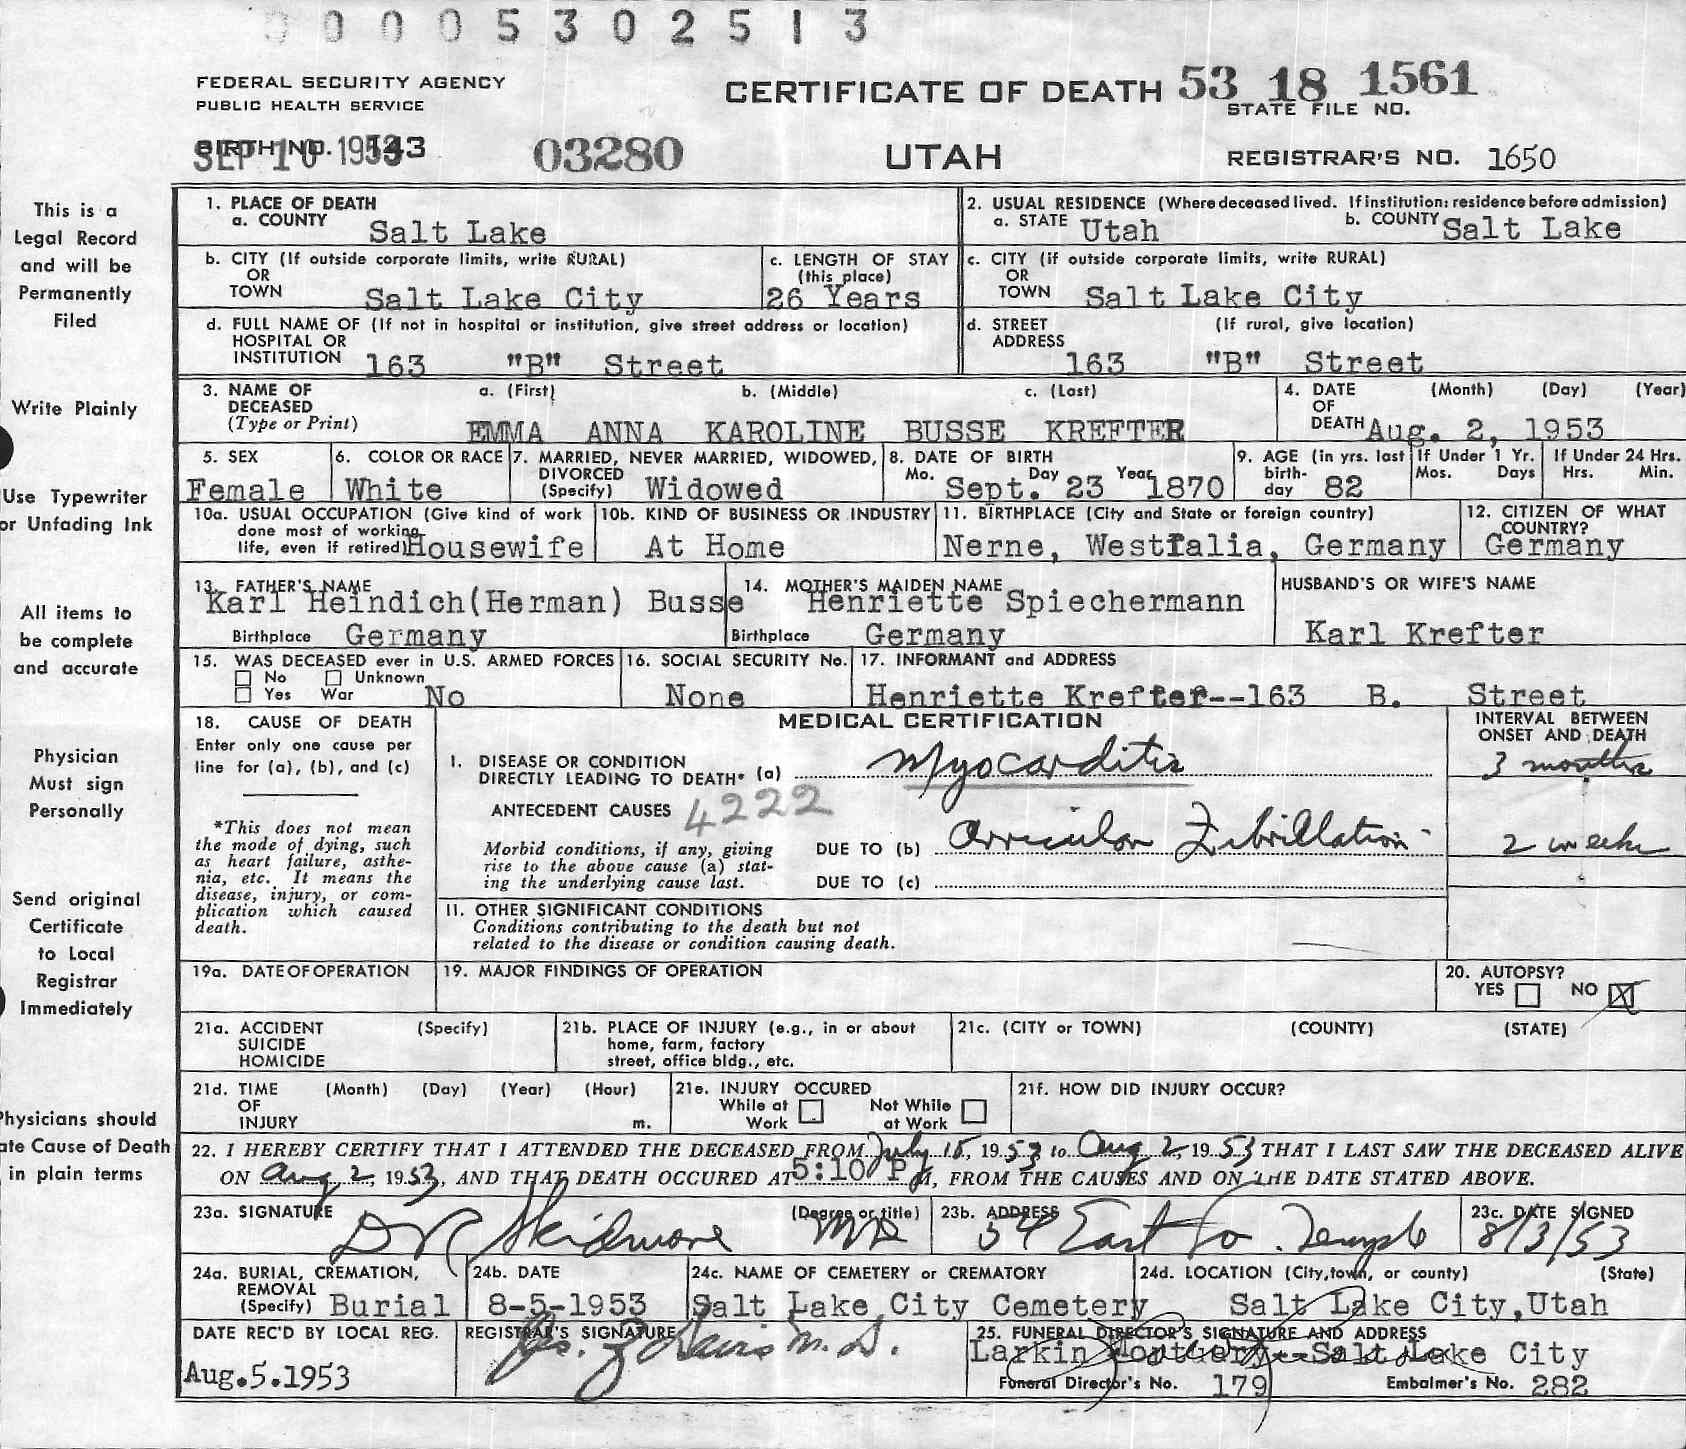 0 0 0 0 5 3 0 2 5 1 3
FEDERAL SECURITY AGENCY
PUBLIC HEALTH SERVICE
CERTIFICATE OF DEATH 53 18 1561
STATE FILE NO.
BIRTH NO. 143
SEP 10 1953
03280
UTAH
REGISTRAR'S NO. 1650
This is a
Legal Record
and will be
Permanently
Filed
Write Plainly
Use Typewriter
or Unfading Ink
All items to
be complete
and accurate
Physician
Must sign
Personally
Send original
Certificate
to Local
Registrar
Immediately
Physicians should
ate Cause of Death
in plain terms
1. PLACE OF DEATH
a. COUNTY Salt Lake
2. USUAL RESIDENCE (Where deceased lived. If institution: residence before admission)
a. STATE Utah b. COUNTY Salt Lake
b. CITY (If outside corporate limits, write RURAL)
OR
TOWN Salt Lake City
c. LENGTH OF STAY
(this place)
26 Years
c. CITY (if outside corporate limits, write RURAL)
OR
TOWN Salt Lake City
d. FULL NAME OF (If not in hospital or institution, give street address or location)
HOSPITAL OR
INSTITUTION 163 "B" Street
d. STREET (If rural, give location)
ADDRESS 163 "B" Street
3. NAME OF DECEASED a. (First) b. (Middle) c. (Last)
(Type or Print) EMMA ANNA KAROLINE BUSSE KREFTER
4. DATE (Month) (Day) (Year)
OF
DEATH Aug. 2, 1953
5. SEX
Female
6. COLOR OR RACE
White
7. MARRIED, NEVER MARRIED, WIDOWED,
DIVORCED
(Specify) Widowed
8. DATE OF BIRTH
Mo. Day Year
Sept. 23 1870
9. AGE (in yrs. last
birth-
day 82
If Under 1 Yr.
Mos. Days
If Under 24 Hrs.
Hrs. Min.
10a. USUAL OCCUPATION (Give kind of work
done most of working
life, even if retired) Housewife
10b. KIND OF BUSINESS OR INDUSTRY
At Home
11. BIRTHPLACE (City and State or foreign country)
Nerne, Westfalia, Germany
12. CITIZEN OF WHAT
COUNTRY?
Germany
13. FATHER'S NAME
Karl Heindich(Herman) Busse
Birthplace Germany
14. MOTHER'S MAIDEN NAME
Henriette Spiechermann
Birthplace Germany
HUSBAND'S OR WIFE'S NAME
Karl Krefter
15. WAS DECEASED ever in U.S. ARMED FORCES
No Unknown
Yes War No
16. SOCIAL SECURITY No.
None
17. INFORMANT and ADDRESS
Henriette Krefter--163 B. Street
18. CAUSE OF DEATH
Enter only one cause per
line for (a), (b), and (c)
*This does not mean
the mode of dying, such
as heart failure, asthe-
nia, etc. It means the
disease, injury, or com-
plication which caused
death.
MEDICAL CERTIFICATION
INTERVAL BETWEEN
ONSET AND DEATH
I. DISEASE OR CONDITION
DIRECTLY LEADING TO DEATH* (a) Myocarditis 3 months
ANTECEDENT CAUSES 4222
Morbid conditions, if any, giving
rise to the above cause (a) stat-
ing the underlying cause last.
DUE TO (b) Auricular Fibrillation 2 weeks
DUE TO (c)
II. OTHER SIGNIFICANT CONDITIONS
Conditions contributing to the death but not
related to the disease or condition causing death.
19a. DATE OF OPERATION
19. MAJOR FINDINGS OF OPERATION
20. AUTOPSY?
YES NO X
21a. ACCIDENT (Specify)
SUICIDE
HOMICIDE
21b. PLACE OF INJURY (e.g., in or about
home, farm, factory
street, office bldg., etc.
21c. (CITY or TOWN) (COUNTY) (STATE)
21d. TIME (Month) (Day) (Year) (Hour)
OF
INJURY m.
21e. INJURY OCCURED
While at Work Not While at Work
21f. HOW DID INJURY OCCUR?
22. I HEREBY CERTIFY THAT I ATTENDED THE DECEASED FROM July 15, 1953 to Aug 2, 1953 THAT I LAST SAW THE DECEASED ALIVE
ON Aug 2, 1953, AND THAT DEATH OCCURED AT 5:10 P M, FROM THE CAUSES AND ON THE DATE STATED ABOVE.
23a. SIGNATURE (Degree or title)
Skidmore MD
23b. ADDRESS
54 East So. Temple
23c. DATE SIGNED
8/3/53
24a. BURIAL, CREMATION,
REMOVAL
(Specify) Burial
24b. DATE
8-5-1953
24c. NAME OF CEMETERY or CREMATORY
Salt Lake City Cemetery
24d. LOCATION (City, town, or county) (State)
Salt Lake City, Utah
DATE REC'D BY LOCAL REG.
Aug.5.1953
REGISTRAR'S SIGNATURE
Davis M.D.
25. FUNERAL DIRECTOR'S SIGNATURE AND ADDRESS
Larkin Mortuary--Salt Lake City
Funeral Director's No. 179 Embalmer's No. 282